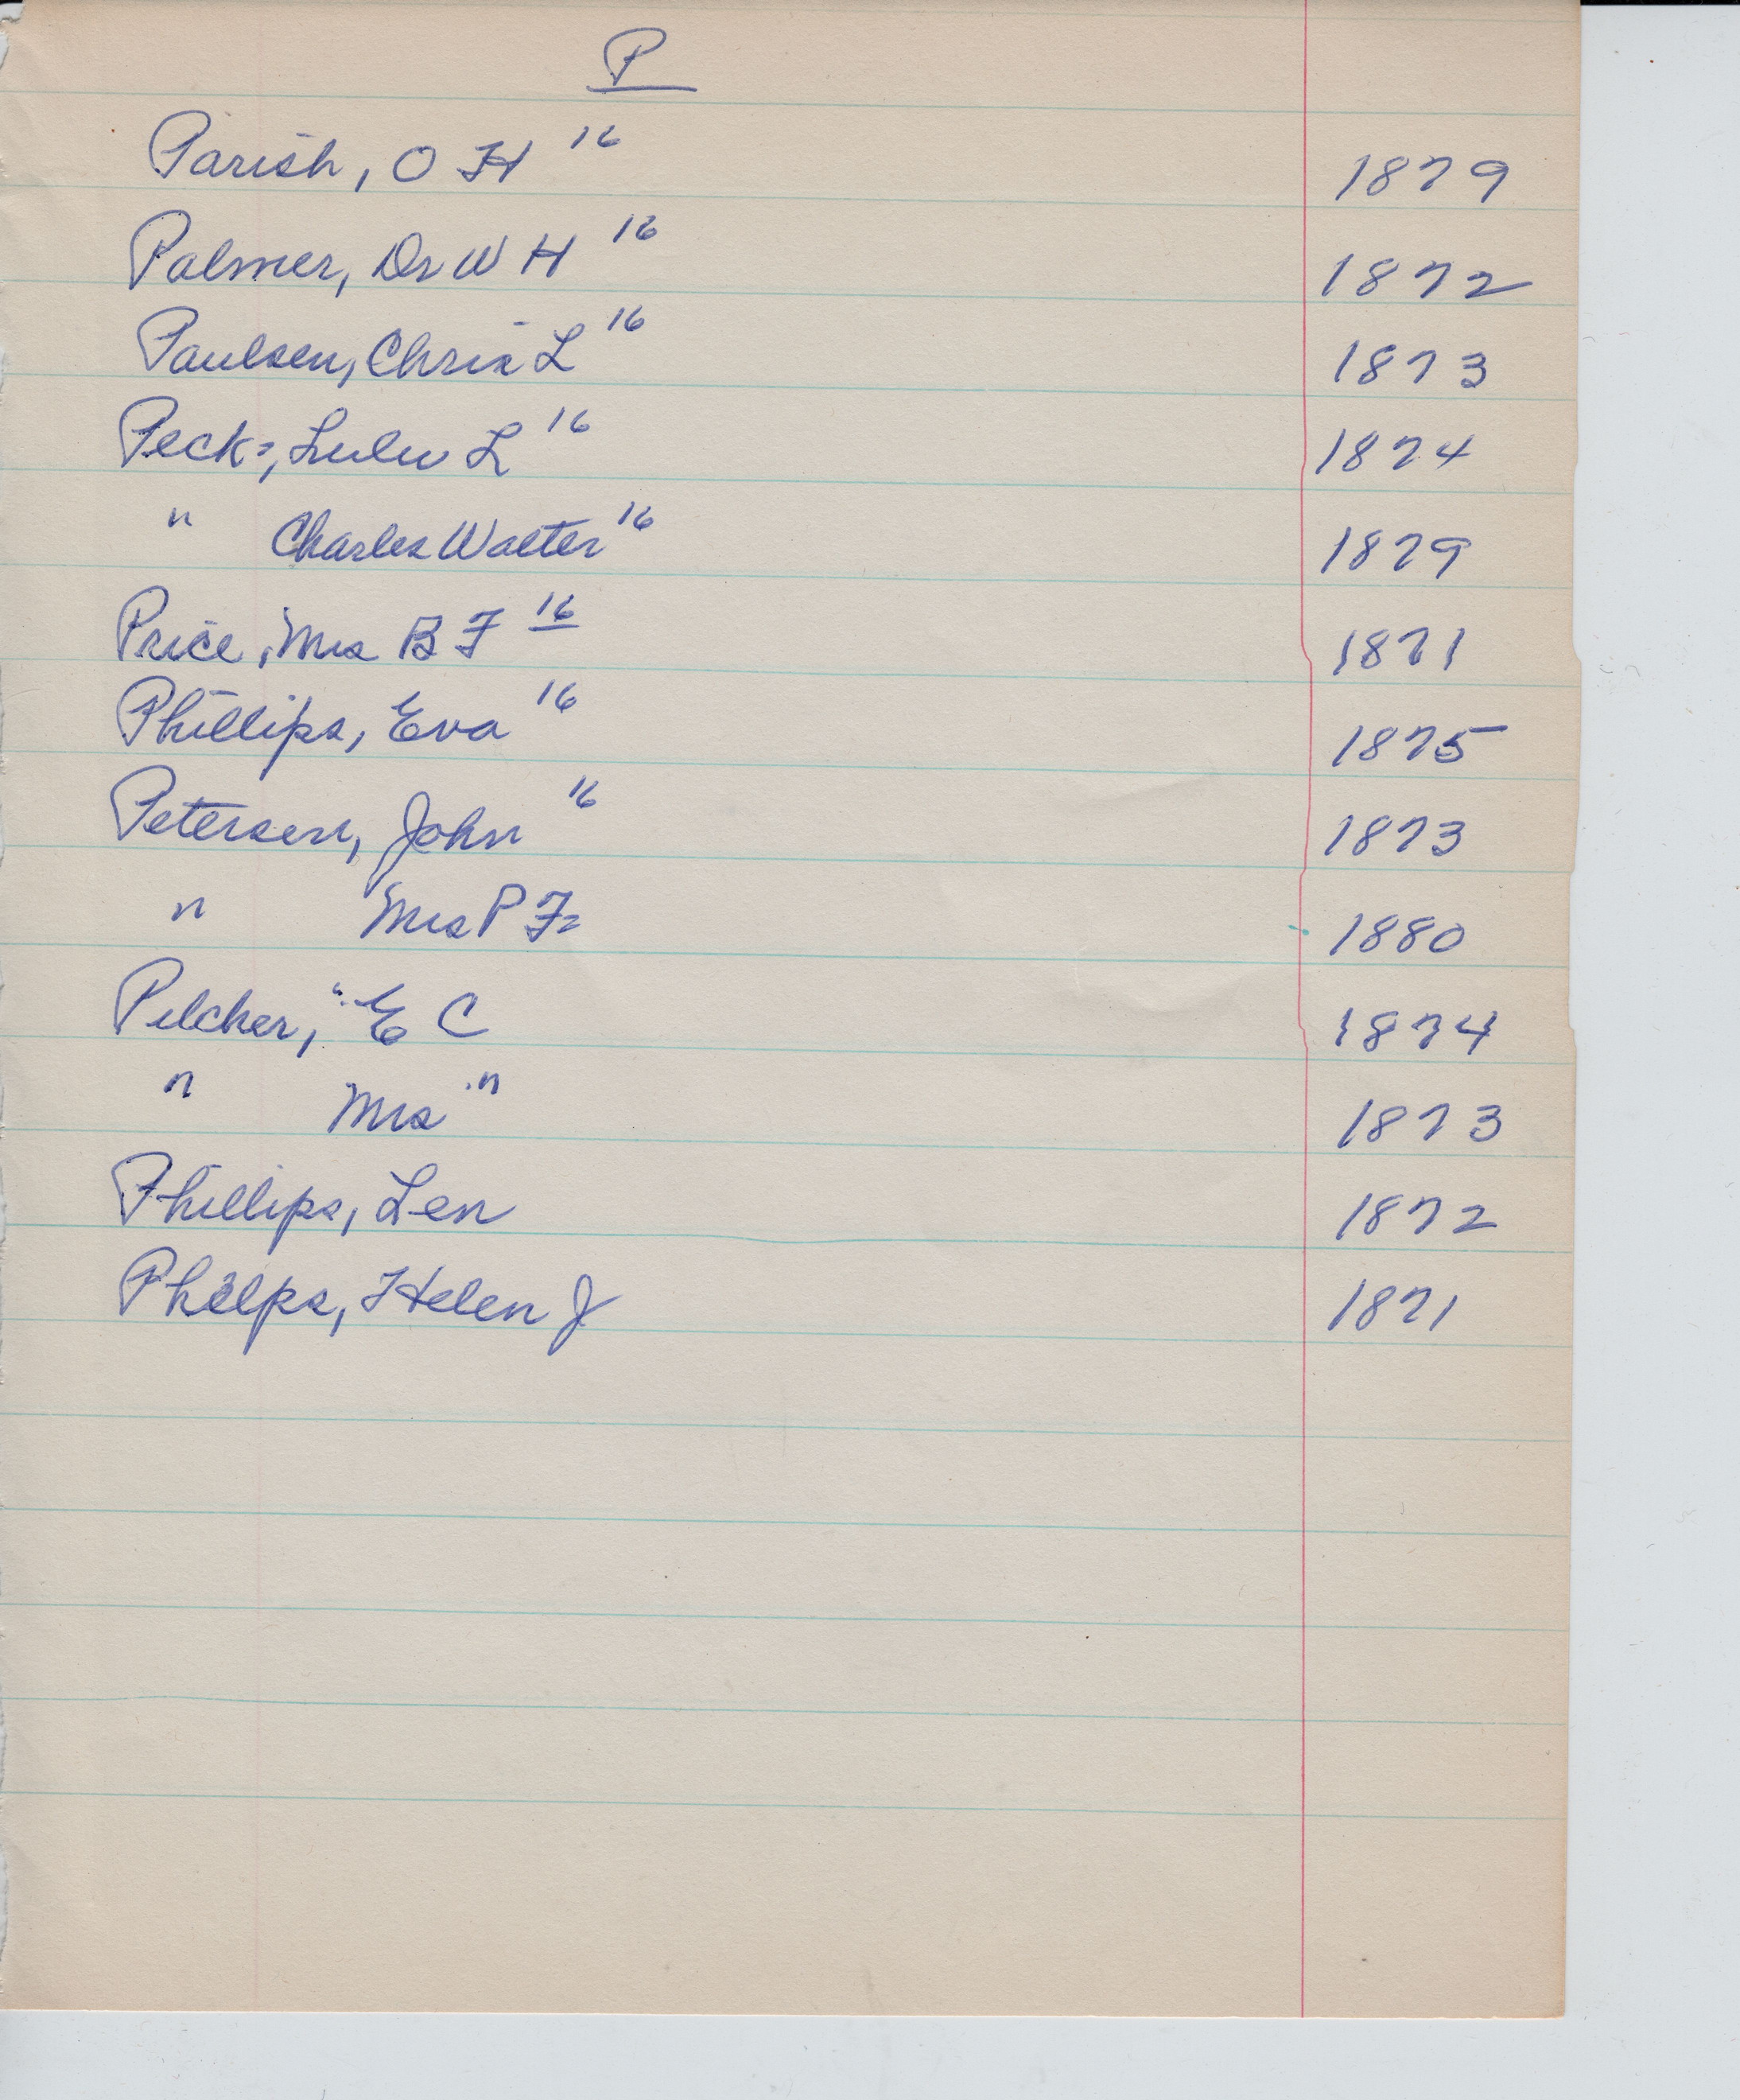 P
Parish, O H 16 1879
Palmer, Dr W H 16 1872
Paulsen, Chris L 16 1873
Peck, Lulu L 16 1874
" Charles Walter 16 1879
Price, Mrs B F 16 1871
Phillips, Eva 16 1875
Petersen, John 16 1873
" Mrs P F 1880
Pilcher, E C 1874
" Mrs " 1873
Phillips, Len 1872
Phelps, Helen J 1871